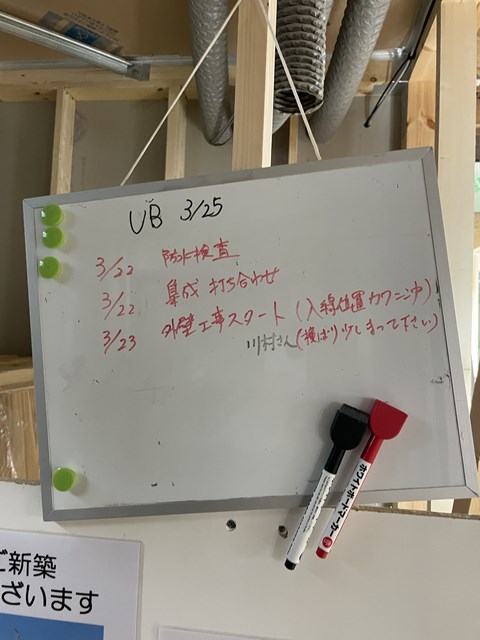 UB 3/25
3/22 防水検査
3/22 集成 打ち合わせ
3/23 外壁工事スタート (入線位置カクニン中)
川村さん (横ばり少しまって下さい)
ホワイトボードマーカー
ご新築
ざいます